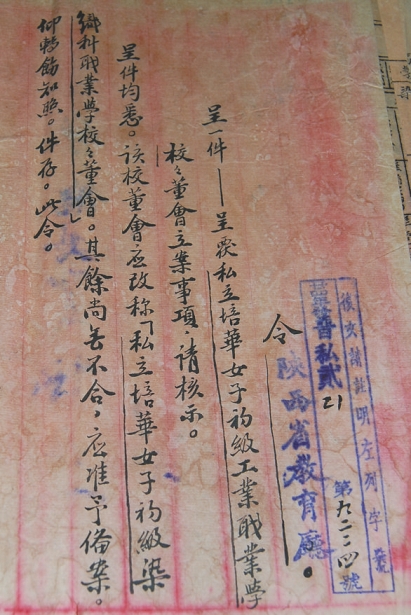 後文請註明左列字號
普私貳21
第九二三四號
令陝西省教育廳。
呈一件——呈爲私立培華女子初級工業職業學
校校董會立案事項、請核示。
呈件均悉。該校董會應改稱「私立培華女子初級染
織科職業學校校董會」。其餘尚無不合，應准予備案。
仰轉飭知照。件存。此令。